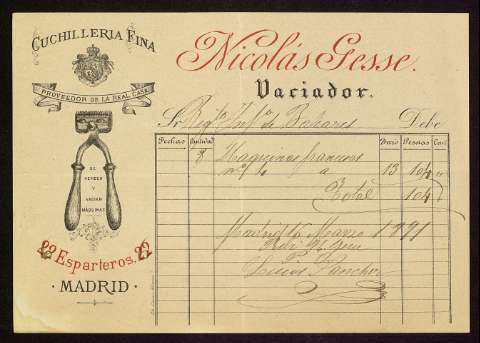 CUCHILLERIA FINA
PROVEEDOR DE LA REAL CASA
SE
VENDEN
Y
VACIAN
MAQUINAS
22 Esparteros, 22
· MADRID ·
Nicolás Gesse.
Vaciador.
Sr Regto Infa de Debe
Fechas Cantidad Precio Pesetas Cent
8 Maquinas francesas
nº 1 a 13 104 "
Total 104 "
Madrid Marzo 1891
Recibí
P.
Lucio Sanchez